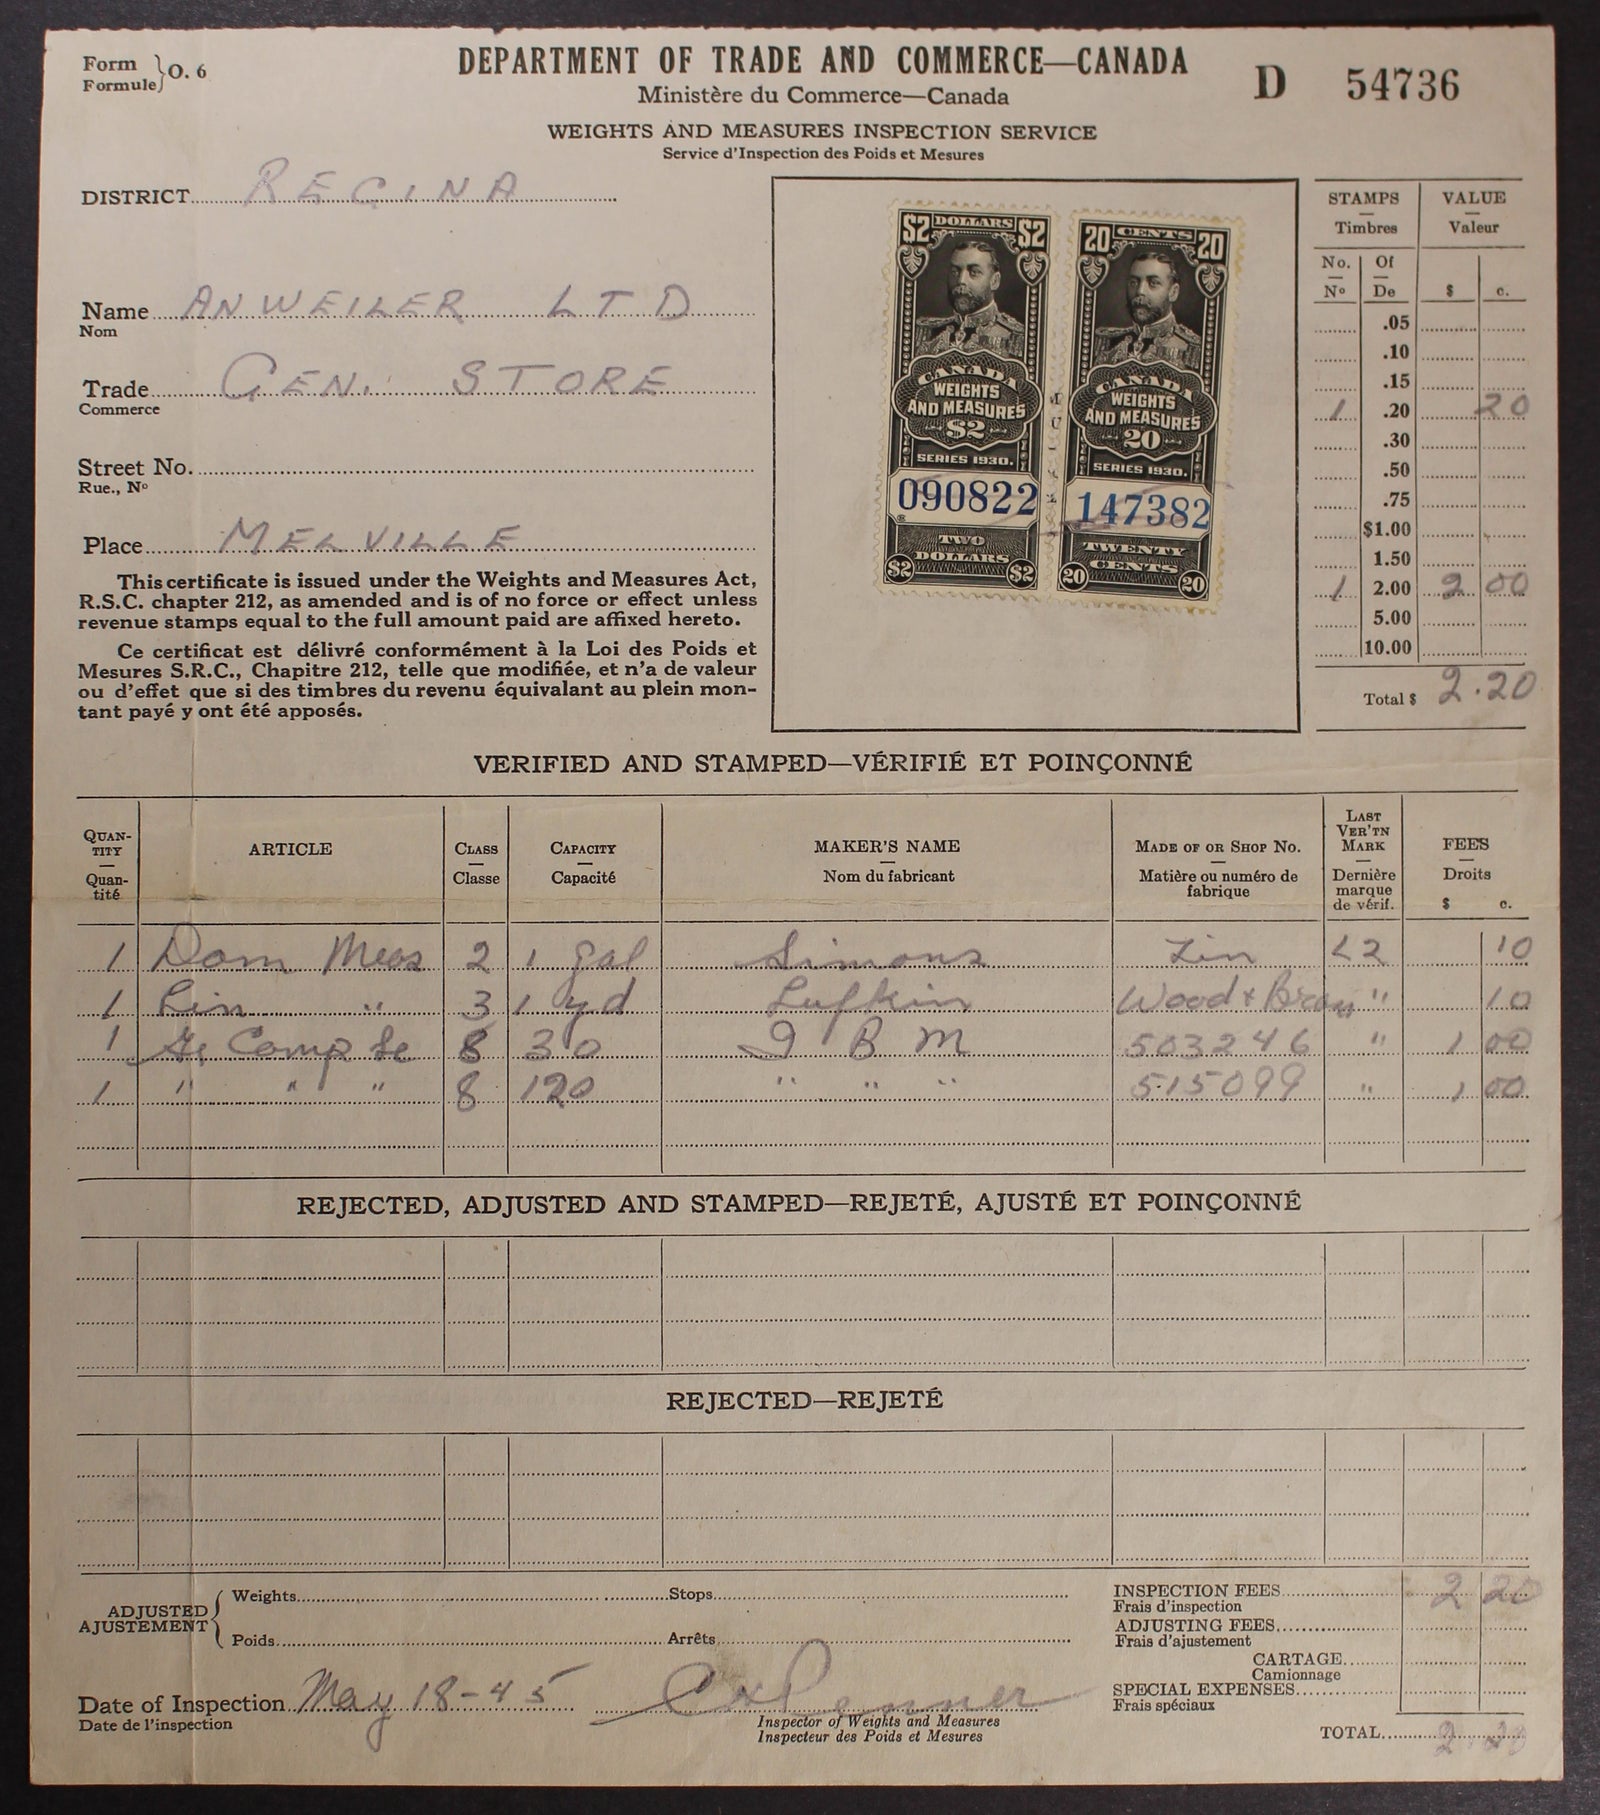 Form
Formule} O. 6
DEPARTMENT OF TRADE AND COMMERCE—CANADA
Ministère du Commerce—Canada
D 54736
WEIGHTS AND MEASURES INSPECTION SERVICE
Service d'Inspection des Poids et Mesures
DISTRICT REGINA
Name ANWEILER LTD
Nom
Trade GEN. STORE
Commerce
Street No.
Rue., Nº
Place MELVILLE
This certificate is issued under the Weights and Measures Act,
R.S.C. chapter 212, as amended and is of no force or effect unless
revenue stamps equal to the full amount paid are affixed hereto.
Ce certificat est délivré conformément à la Loi des Poids et
Mesures S.R.C., Chapitre 212, telle que modifiée, et n'a de valeur
ou d'effet que si des timbres du revenu équivalant au plein mon-
tant payé y ont été apposés.
$2 DOLLARS $2
CANADA
WEIGHTS
AND MEASURES
$2
SERIES 1930.
090822
TWO
DOLLARS
$2 $2
20 CENTS 20
CANADA
WEIGHTS
AND MEASURES
20
SERIES 1930.
147382
TWENTY
CENTS
20 20
STAMPS VALUE
Timbres Valeur
No. Of
Nº De $ c.
.05
.10
.15
1 .20 20
.30
.50
.75
$1.00
1.50
1 2.00 2 00
5.00
10.00
Total $ 2.20
VERIFIED AND STAMPED—VÉRIFIÉ ET POINÇONNÉ
QUAN-
TITY
Quan-
tité
ARTICLE
CLASS
Classe
CAPACITY
Capacité
MAKER'S NAME
Nom du fabricant
MADE OF OR SHOP NO.
Matière ou numéro de
fabrique
LAST
VER'TN
MARK
Dernière
marque
de vérif.
FEES
Droits
$ c.
1 Dom Meas 2 1 gal Simons Tin L2 10
1 Lin " 3 1 yd Lufkin Wood & Brass " 10
1 Comp Sc 8 30 I B M 503246 " 1 00
1 " " " 8 120 " " " 515099 " 1 00
REJECTED, ADJUSTED AND STAMPED—REJETÉ, AJUSTÉ ET POINÇONNÉ
REJECTED—REJETÉ
ADJUSTED
AJUSTEMENT
Weights Stops
Poids Arrêts
INSPECTION FEES 2 20
Frais d'inspection
ADJUSTING FEES
Frais d'ajustement
CARTAGE
Camionnage
SPECIAL EXPENSES
Frais spéciaux
TOTAL 2.20
Date of Inspection May 18-45
Date de l'inspection
Penner
Inspector of Weights and Measures
Inspecteur des Poids et Mesures